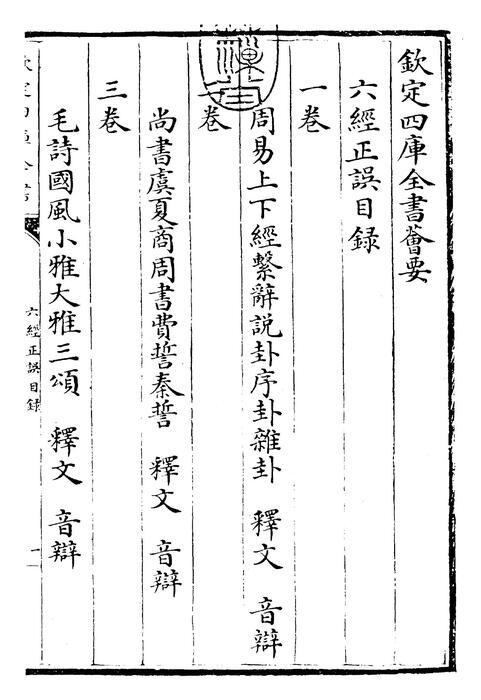 欽定四庫全書薈要
六經正誤目録
一卷
周易上下經繫辭説卦序卦雜卦 釋文 音辯
卷
尚書虞夏商周書費誓秦誓 釋文 音辯
三卷
毛詩國風小雅大雅三頌 釋文 音辯
六經正誤目録
一